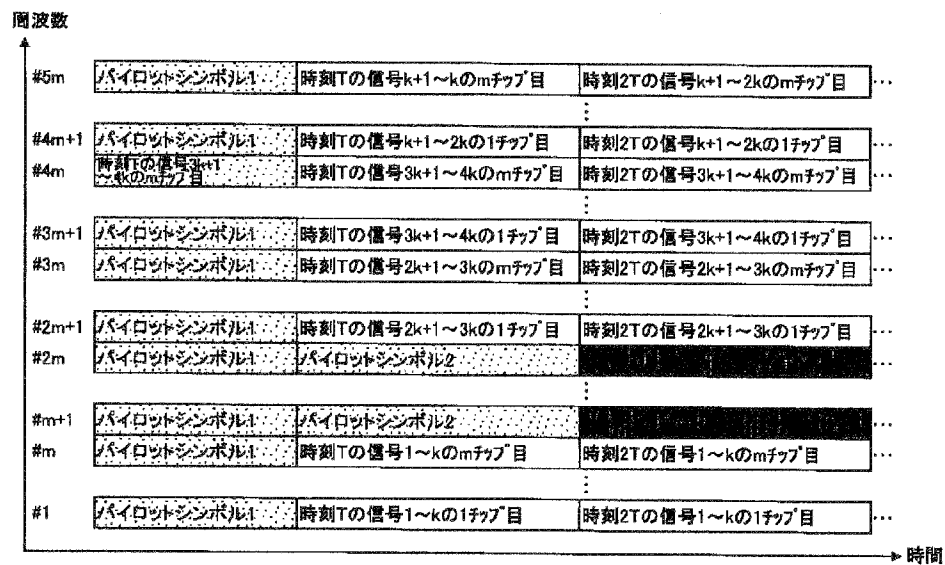 周波数
#5m パイロットシンボル1 時刻Tの信号k+1～kのmチップ目 時刻2Tの信号k+1～2kのmチップ目 ...
#4m+1 パイロットシンボル1 時刻Tの信号k+1～2kの1チップ目 時刻2Tの信号k+1～2kの1チップ目 ...
#4m 時刻Tの信号3k+1
～4kのmチップ目 時刻Tの信号3k+1～4kのmチップ目 時刻2Tの信号3k+1～4kのmチップ目 ...
#3m+1 パイロットシンボル1 時刻Tの信号3k+1～4kの1チップ目 時刻2Tの信号3k+1～4kの1チップ目 ...
#3m パイロットシンボル1 時刻Tの信号2k+1～3kのmチップ目 時刻2Tの信号2k+1～3kのmチップ目 ...
#2m+1 パイロットシンボル1 時刻Tの信号2k+1～3kの1チップ目 時刻2Tの信号2k+1～3kの1チップ目 ...
#2m パイロットシンボル1 パイロットシンボル2 ...
#m+1 パイロットシンボル1 パイロットシンボル2 ...
#m パイロットシンボル1 時刻Tの信号1～kのmチップ目 時刻2Tの信号1～kのmチップ目 ...
#1 パイロットシンボル1 時刻Tの信号1～kの1チップ目 時刻2Tの信号1～kの1チップ目 ...
時間